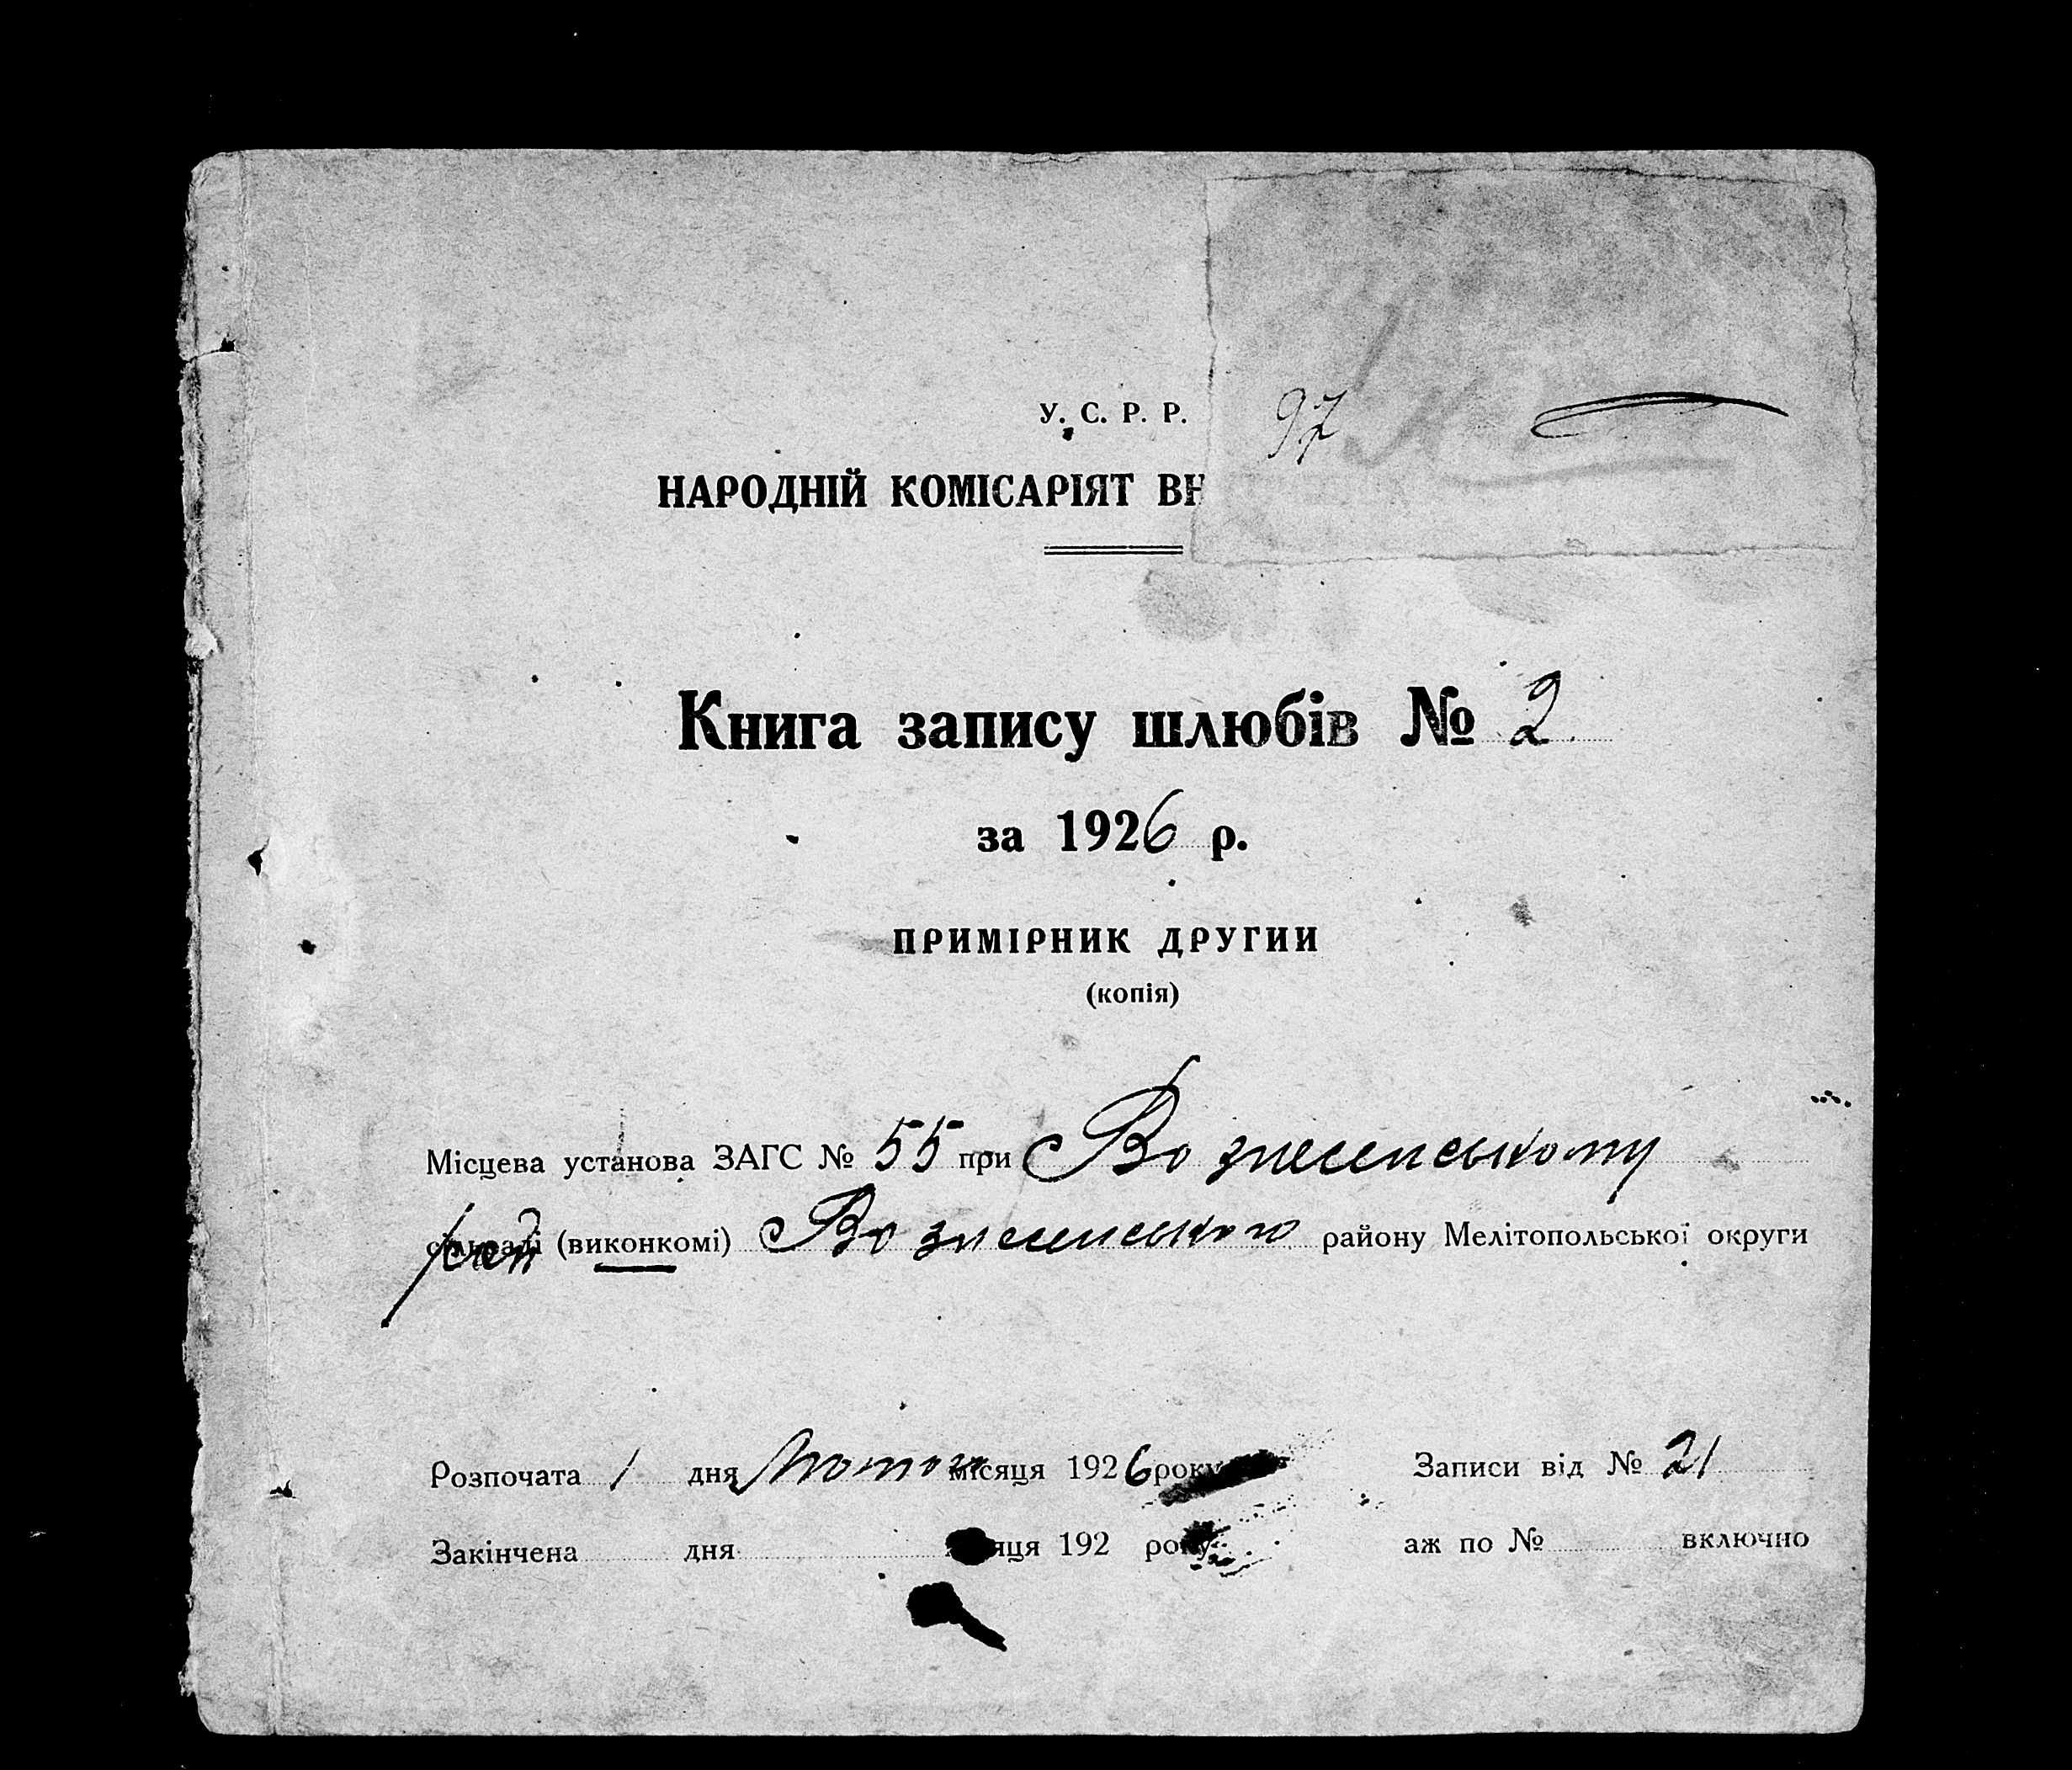 У. С. Р. Р.
97
НАРОДНІЙ КОМІСАРІЯТ ВН
Книга запису шлюбів № 2
за 1926 р.
ПРИМІРНИК ДРУГИИ
(копія)
Місцева установа ЗАГС № 55 при Вознесенському
рай (виконкомі) Вознесенського району Мелітопольської округи
Розпочата 1 дня місяця 1926 року Записи від № 21
Закінчена дня місяця 192 року аж по № включно